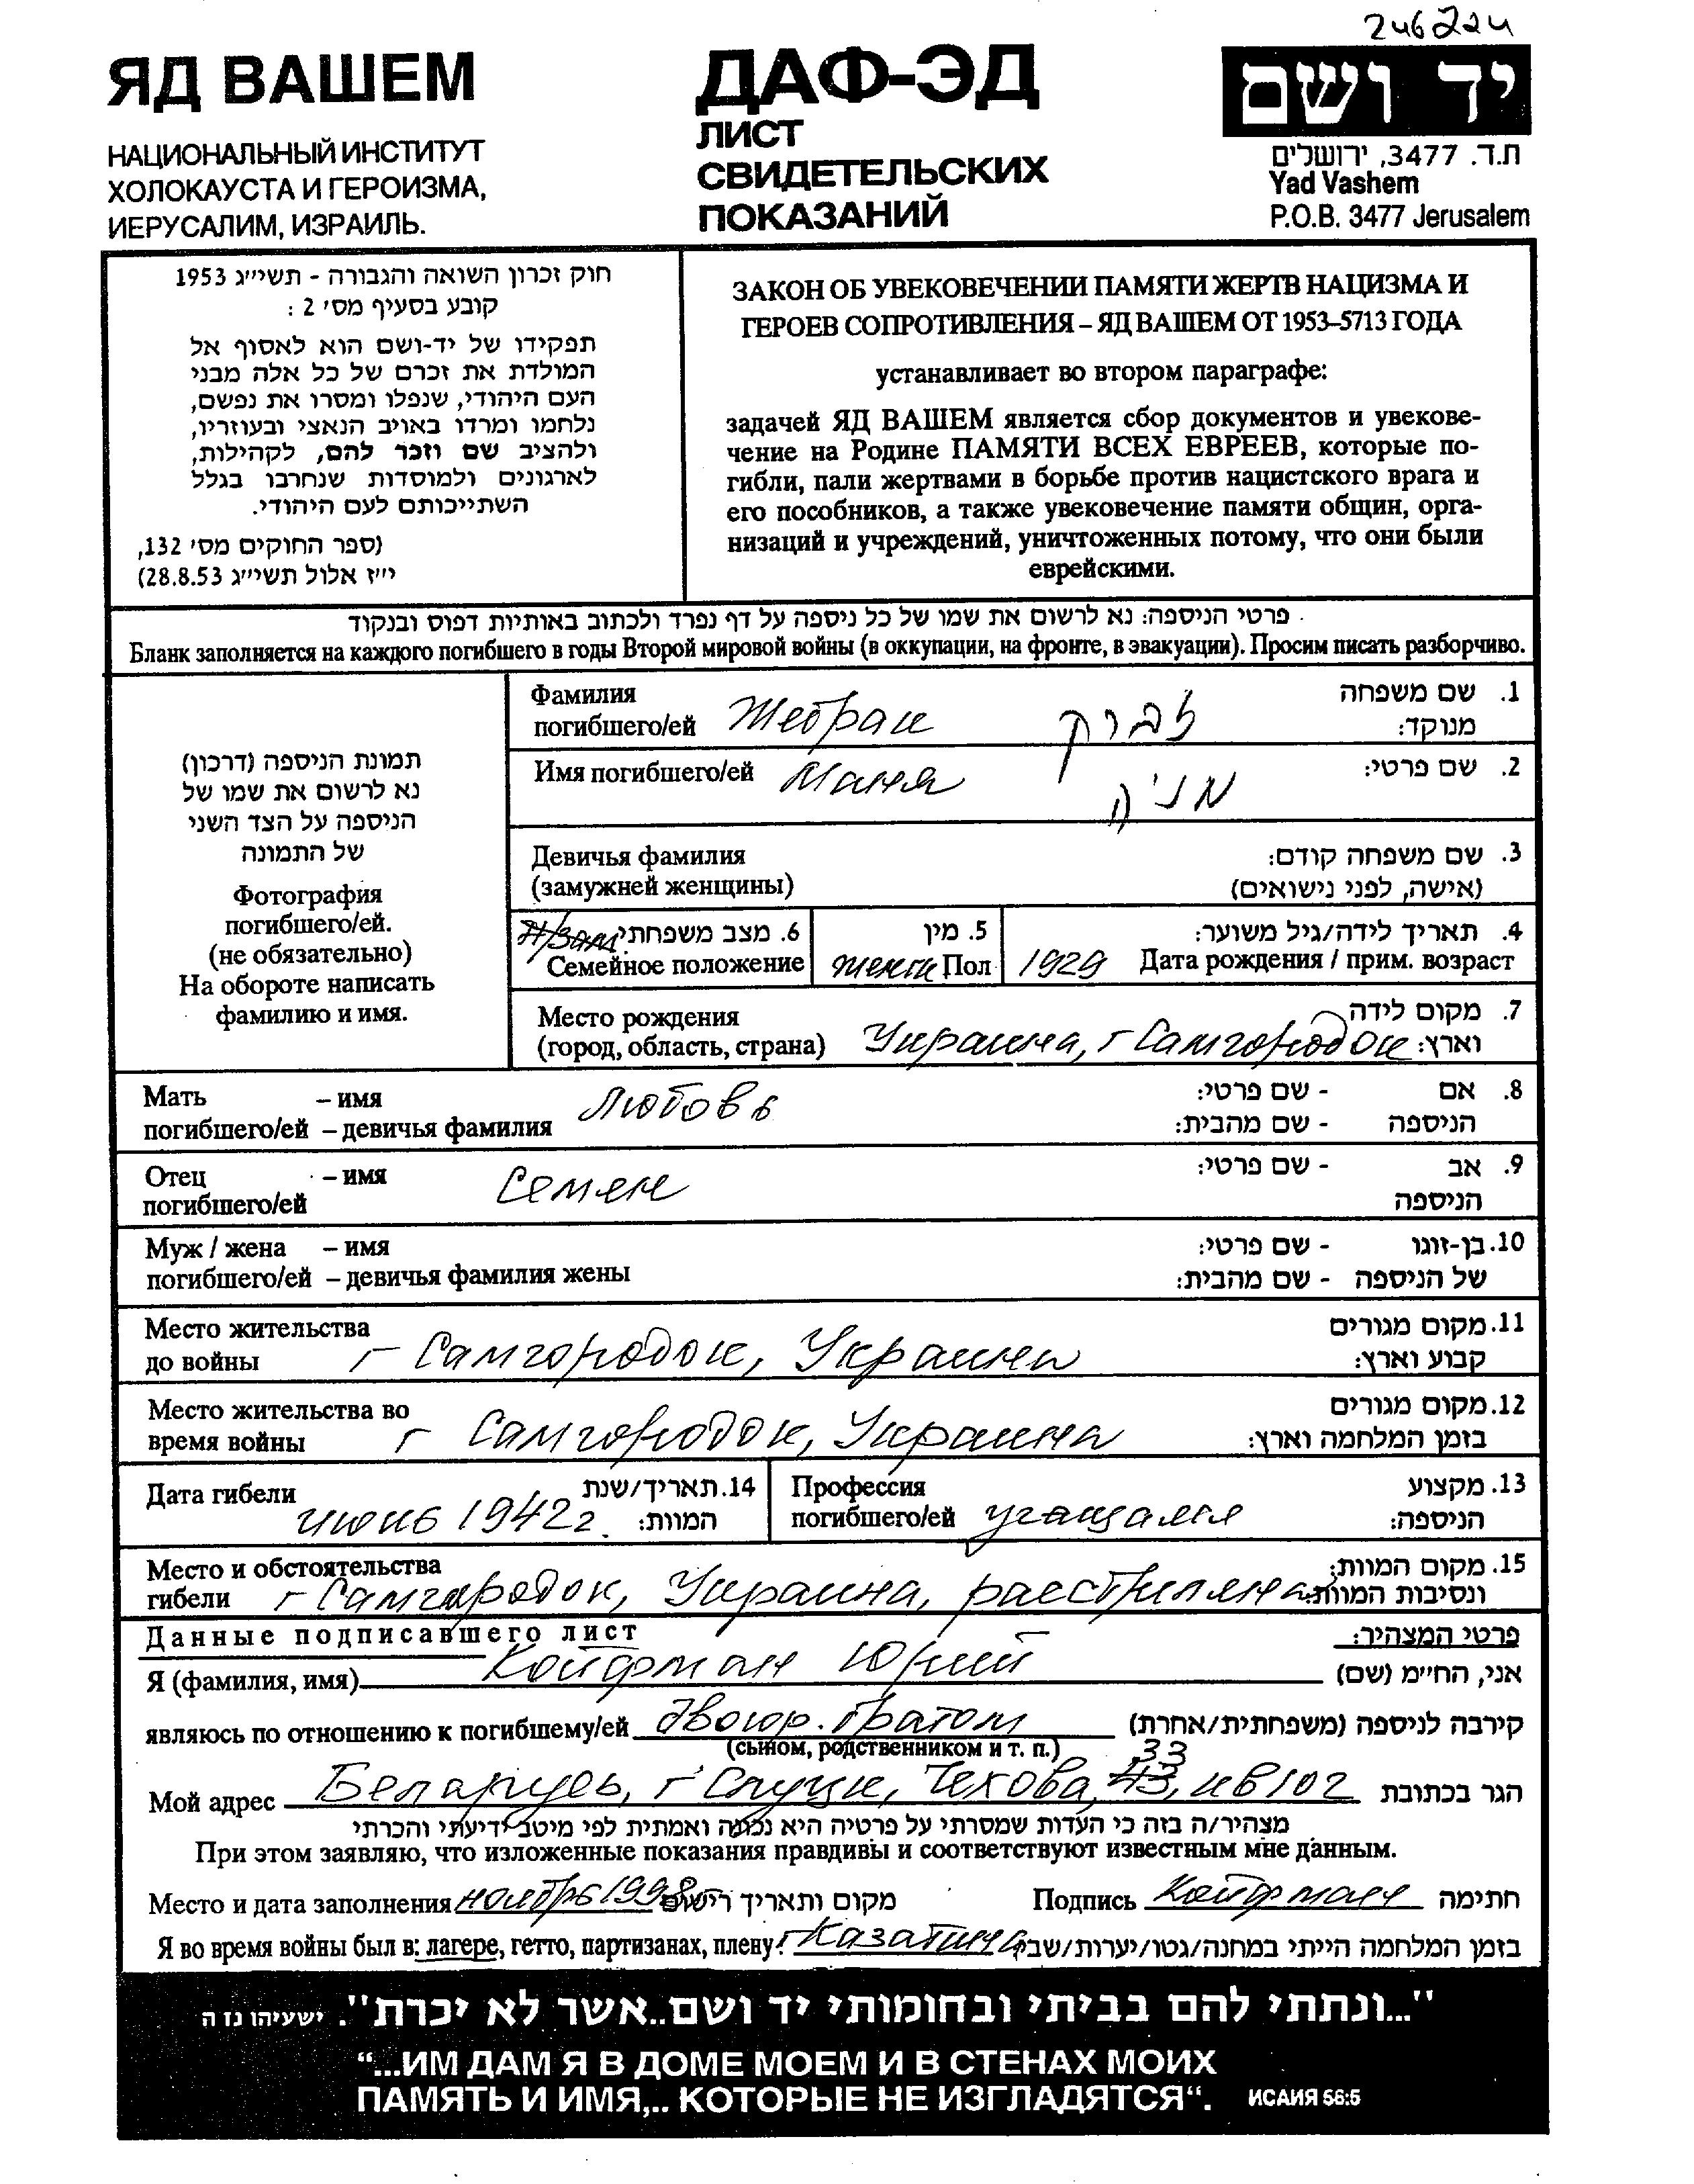 246224
ЯД ВАШЕМ
НАЦИОНАЛЬНЫЙ ИНСТИТУТ
ХОЛОКАУСТА И ГЕРОИЗМА,
ИЕРУСАЛИМ, ИЗРАИЛЬ.
ДАФ-ЭД
ЛИСТ
СВИДЕТЕЛЬСКИХ
ПОКАЗАНИЙ
יד ושם
ת.ד. 3477, ירושלים
Yad Vashem
P.O.B. 3477 Jerusalem
חוק זכרון השואה והגבורה - תשי״ג 1953
קובע בסעיף מס׳ 2 :
תפקידו של יד-ושם הוא לאסוף אל
המולדת את זכרם של כל אלה מבני
העם היהודי, שנפלו ומסרו את נפשם,
נלחמו ומרדו באויב הנאצי ובעוזריו,
ולהציב שם וזכר להם, לקהילות,
לארגונים ולמוסדות שנחרבו בגלל
השתייכותם לעם היהודי.
(ספר החוקים מס׳ 132,
י״ז אלול תשי״ג 28.8.53)
ЗАКОН ОБ УВЕКОВЕЧЕНИИ ПАМЯТИ ЖЕРТВ НАЦИЗМА И
ГЕРОЕВ СОПРОТИВЛЕНИЯ – ЯД ВАШЕМ ОТ 1953–5713 ГОДА
устанавливает во втором параграфе:
задачей ЯД ВАШЕМ является сбор документов и увекове-
чение на Родине ПАМЯТИ ВСЕХ ЕВРЕЕВ, которые по-
гибли, пали жертвами в борьбе против нацистского врага и
его пособников, а также увековечение памяти общин, орга-
низаций и учреждений, уничтоженных потому, что они были
еврейскими.
פרטי הניספה: נא לרשום את שמו של כל ניספה על דף נפרד ולכתוב באותיות דפוס ובנקוד
Бланк заполняется на каждого погибшего в годы Второй мировой войны (в оккупации, на фронте, в эвакуации). Просим писать разборчиво.
תמונת הניספה (דרכון)
נא לרשום את שמו של
הניספה על הצד השני
של התמונה
Фотография
погибшего/ей.
(не обязательно)
На обороте написать
фамилию и имя.
Фамилия 1. שם משפחה
погибшего/ей Жебрак זברק מנוקד:
Имя погибшего/ей Маня מניה 2. שם פרטי:
Девичья фамилия 3. שם משפחה קודם:
(замужней женщины) (אישה, לפני נישואים)
н/зам 6. מצב משפחתי 5. מין 4. תאריך לידה/גיל משוער:
Семейное положение женск Пол 1929 Дата рождения / прим. возраст
Место рождения 7. מקום לידה
(город, область, страна) Украина, г Самгородок וארץ:
Мать – имя Любовь - שם פרטי: 8. אם
погибшего/ей – девичья фамилия - שם מהבית: הניספה
Отец – имя Семен - שם פרטי: 9. אב
погибшего/ей הניספה
Муж / жена – имя - שם פרטי: 10. בן-זוגו
погибшего/ей – девичья фамилия жены - שם מהבית: של הניספה
Место жительства 11. מקום מגורים
до войны г Самгородок, Украина קבוע וארץ:
Место жительства во 12. מקום מגורים
время войны г Самгородок, Украина בזמן המלחמה וארץ:
Дата гибели 14. תאריך/שנת Профессия 13. מקצוע
июнь 1942 г. המוות: погибшего/ей учащаяся הניספה:
Место и обстоятельства 15. מקום המוות:
гибели г Самгородок, Украина, расстреляна ונסיבות המוות:
Данные подписавшего лист פרטי המצהיר:
Я (фамилия, имя) Койфман Юрий אני, הח״מ (שם)
являюсь по отношению к погибшему/ей двоюр. братом קירבה לניספה (משפחתית/אחרת)
(сыном, родственником и т. п.)
33
Мой адрес Беларусь, г Слуцк, Чехова, 43, кв 102 הגר בכתובת
מצהיר/ה בזה כי העדות שמסרתי על פרטיה היא נכונה ואמתית לפי מיטב ידיעתי והכרתי
При этом заявляю, что изложенные показания правдивы и соответствуют известным мне данным.
Место и дата заполнения ноябрь 1998 מקום ותאריך רישום Подпись Койфман חתימה
Я во время войны был в: лагере, гетто, партизанах, плену г Казатин בזמן המלחמה הייתי במחנה/גטו/יערות/שבי
"...ונתתי להם בביתי ובחומותי יד ושם..אשר לא יכרת". ישעיהו נו ה
“...ИМ ДАМ Я В ДОМЕ МОЕМ И В СТЕНАХ МОИХ
ПАМЯТЬ И ИМЯ,.. КОТОРЫЕ НЕ ИЗГЛАДЯТСЯ“. ИСАИЯ 56:5